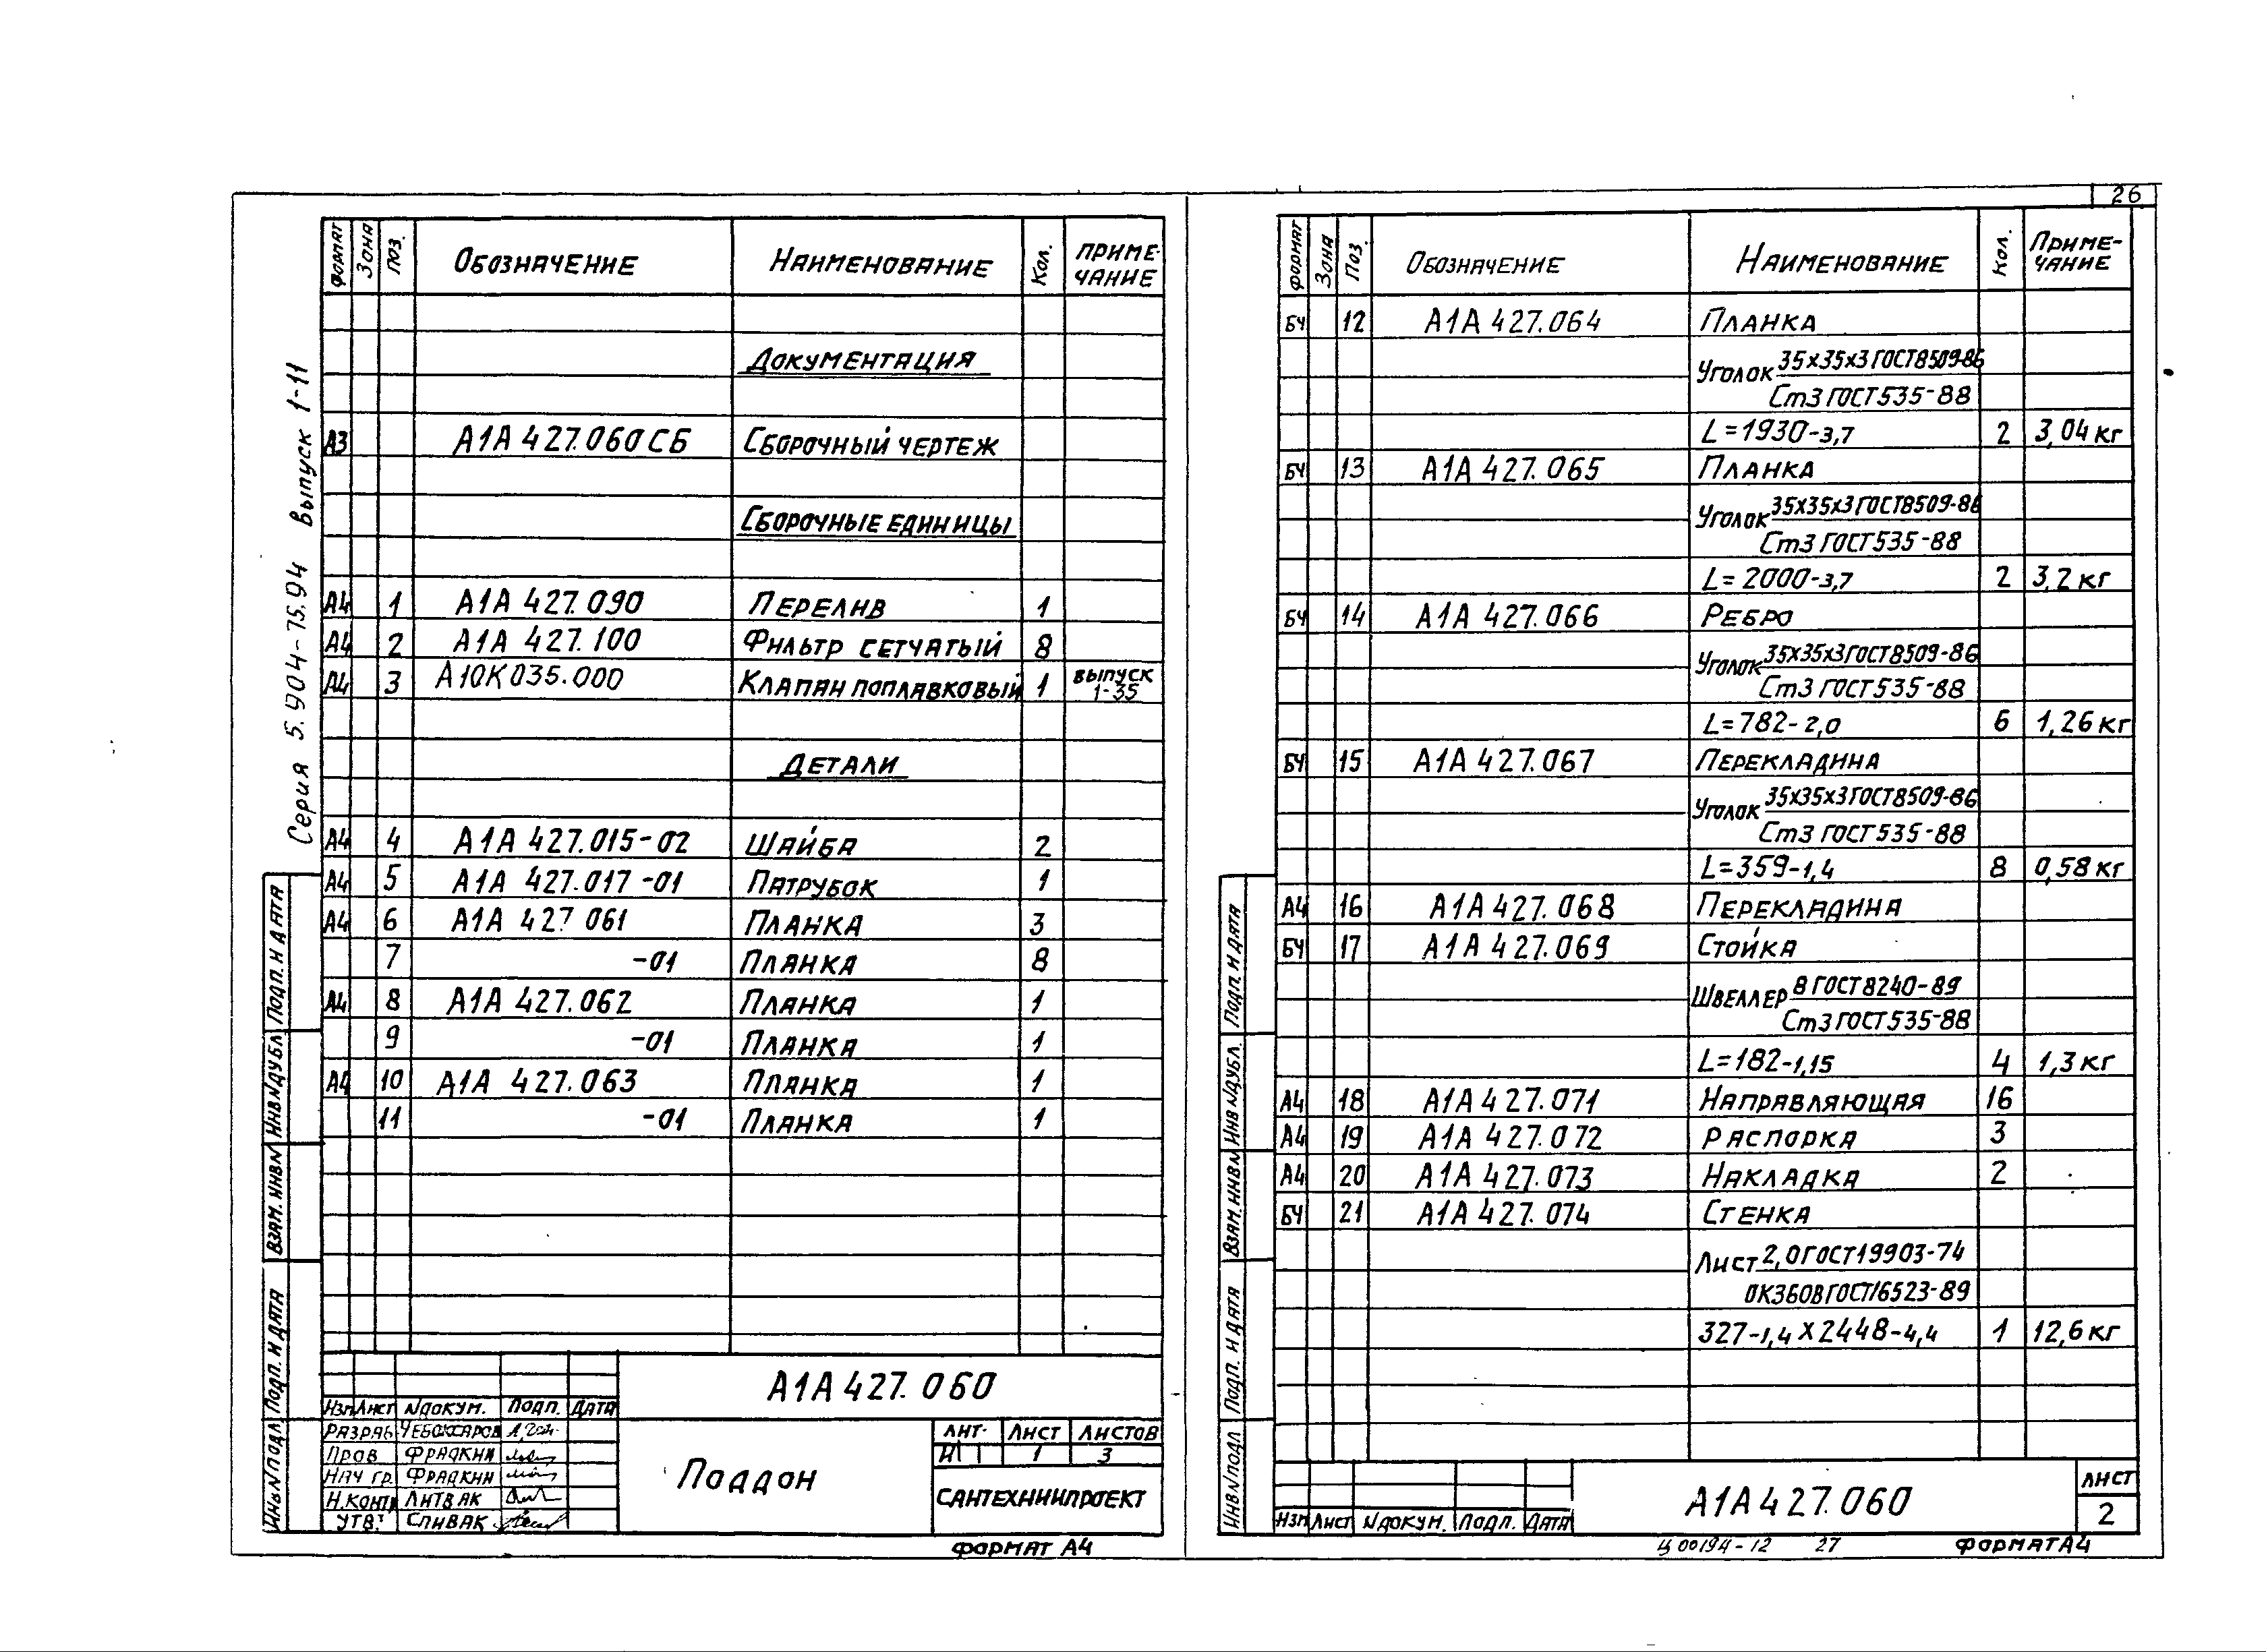 26
Серия 5.904-75.94 Выпуск 1-11
Формат Зона Поз. Обозначение Наименование Кол. Приме-
чание
Документация
А3 А1А 427.060 СБ Сборочный чертеж
Сборочные единицы
А4 1 А1А 427.090 Перелив 1
А4 2 А1А 427.100 Фильтр сетчатый 8
А4 3 А10К035.000 Клапан поплавковый 1 выпуск
1-35
Детали
А4 4 А1А 427.015-02 Шайба 2
А4 5 А1А 427.017-01 Патрубок 1
А4 6 А1А 427 061 Планка 3
7 -01 Планка 8
А4 8 А1А 427.062 Планка 1
9 -01 Планка 1
А4 10 А1А 427.063 Планка 1
11 -01 Планка 1
Подп. и дата
Инв N дубл
Взам. инв N
Подп. и дата
Инв N подл
А1А 427.060
Изм Лист N докум. Подп. Дата
Разраб Чебоксаров
Пров Фрадкин
Нач гр. Фрадкин
Н.контр Литвак
Утв. Спивак
Поддон
Лит. Лист Листов
И 1 3
САНТЕХНИИПРОЕКТ
Формат А4
Формат Зона Поз. Обозначение Наименование Кол. Приме-
чание
БЧ 12 А1А 427.064 Планка
Уголок 35х35х3 ГОСТ 8509-86
Ст3 ГОСТ 535-88
L=1930-3,7 2 3,04 кг
БЧ 13 А1А 427.065 Планка
Уголок 35х35х3 ГОСТ 8509-86
Ст3 ГОСТ 535-88
L=2000-3,7 2 3,2 кг
БЧ 14 А1А 427.066 Ребро
Уголок 35х35х3 ГОСТ 8509-86
Ст3 ГОСТ 535-88
L=782-2,0 6 1,26 кг
БЧ 15 А1А 427.067 Перекладина
Уголок 35х35х3 ГОСТ 8509-86
Ст3 ГОСТ 535-88
L=359-1,4 8 0,58 кг
А4 16 А1А 427.068 Перекладина
БЧ 17 А1А 427.069 Стойка
Швеллер 8 ГОСТ 8240-89
Ст3 ГОСТ 535-88
L=182-1,15 4 1,3 кг
А4 18 А1А 427.071 Направляющая 16
А4 19 А1А 427.072 Распорка 3
А4 20 А1А 427.073 Накладка 2
БЧ 21 А1А 427.074 Стенка
Лист 2,0 ГОСТ 19903-74
ОК360В ГОСТ 16523-89
327-1,4 х 2448-4,4 1 12,6 кг
Подп. и дата
Инв N дубл.
Взам. инв N
Подп. и дата
Инв N подл
Изм Лист N докум. Подп. Дата
А1А 427.060
Лист
2
Ц00194-12 27
Формат А4